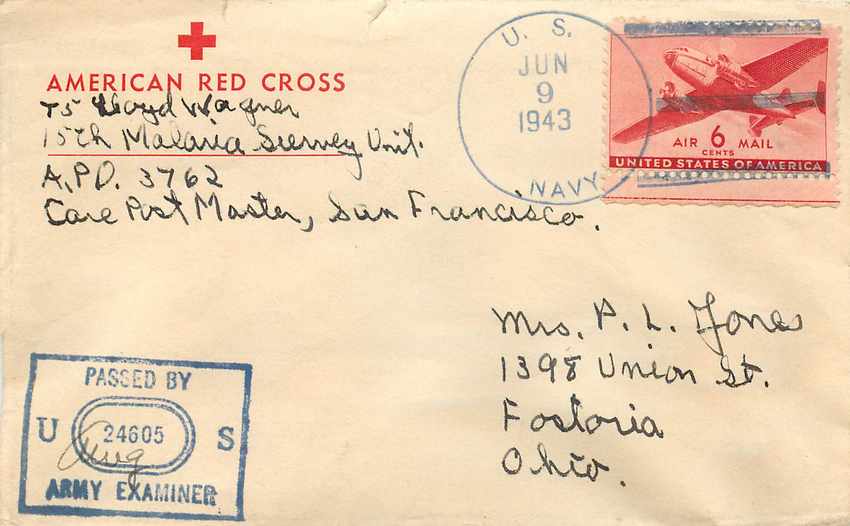 AMERICAN RED CROSS
T5 Lloyd Wagner
15th Malaria Survey Unit.
A.P.O. 3762
Care Post Master, San Francisco.
U. S.
JUN
9
1943
NAVY
AIR 6 MAIL
CENTS
UNITED STATES OF AMERICA
Mrs. P. L. Jones
1398 Union St.
Fostoria
Ohio.
PASSED BY
U 24605 S
ARMY EXAMINER